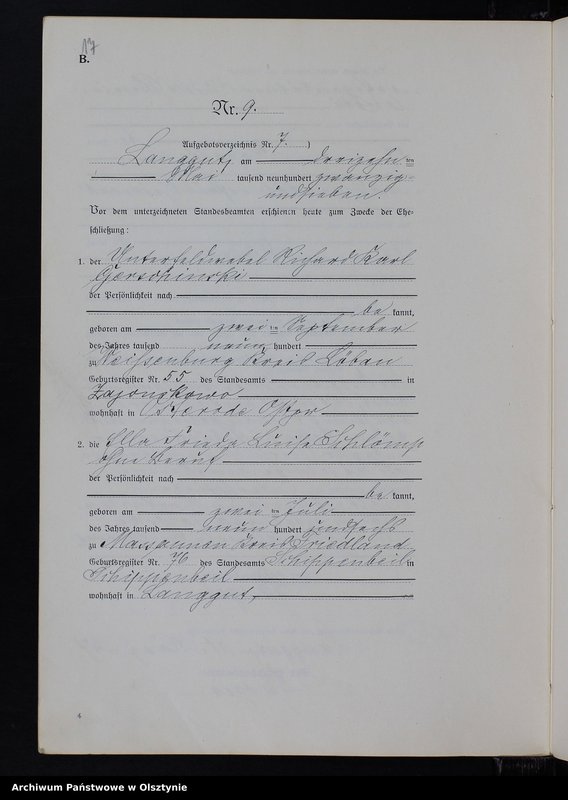 17
B.
Nr. 9.
Aufgebotsverzeichnis Nr. 7.)
Langgut, am dreizehn ten
Mai tausend neunhundert zwanzig-
undsieben.
Vor dem unterzeichneten Standesbeamten erschienen heute zum Zwecke der Ehe-
schließung:
1. der Unterfeldwebel Richard Karl
Gerschinski
der Persönlichkeit nach
be kannt,
geboren am zwei ten September
des Jahres tausend neun hundert
zu Weissenburg Kreis Löbau
Geburtsregister Nr. 55 des Standesamts in
Zajonskowo
wohnhaft in Osterode Ostpr
2. die Ella Frieda Luise Schlömp
ohne Beruf
der Persönlichkeit nach
be kannt,
geboren am zwei ten Juli
des Jahres tausend neun hundert undsechs
zu Massaunen Kreis Friedland
Geburtsregister Nr. 76 des Standesamts Schippenbeil in
Schippenbeil
wohnhaft in Langgut,
4
Archiwum Państwowe w Olsztynie